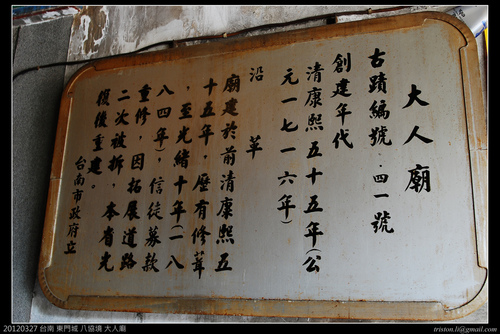 大人廟
古蹟編號：四一號
創建年代
清康熙五十五年（公
元一七一六年）
沿革
廟建於前清康熙五
十五年，歷有修葺
，至光緒十年（一八
八四年），信徒募款
重修，因拓展道路
二次被拆，本省光
復後重建。
台南市政府立
20120327 台南 東門城 八協境 大人廟
triston.li@gmail.com